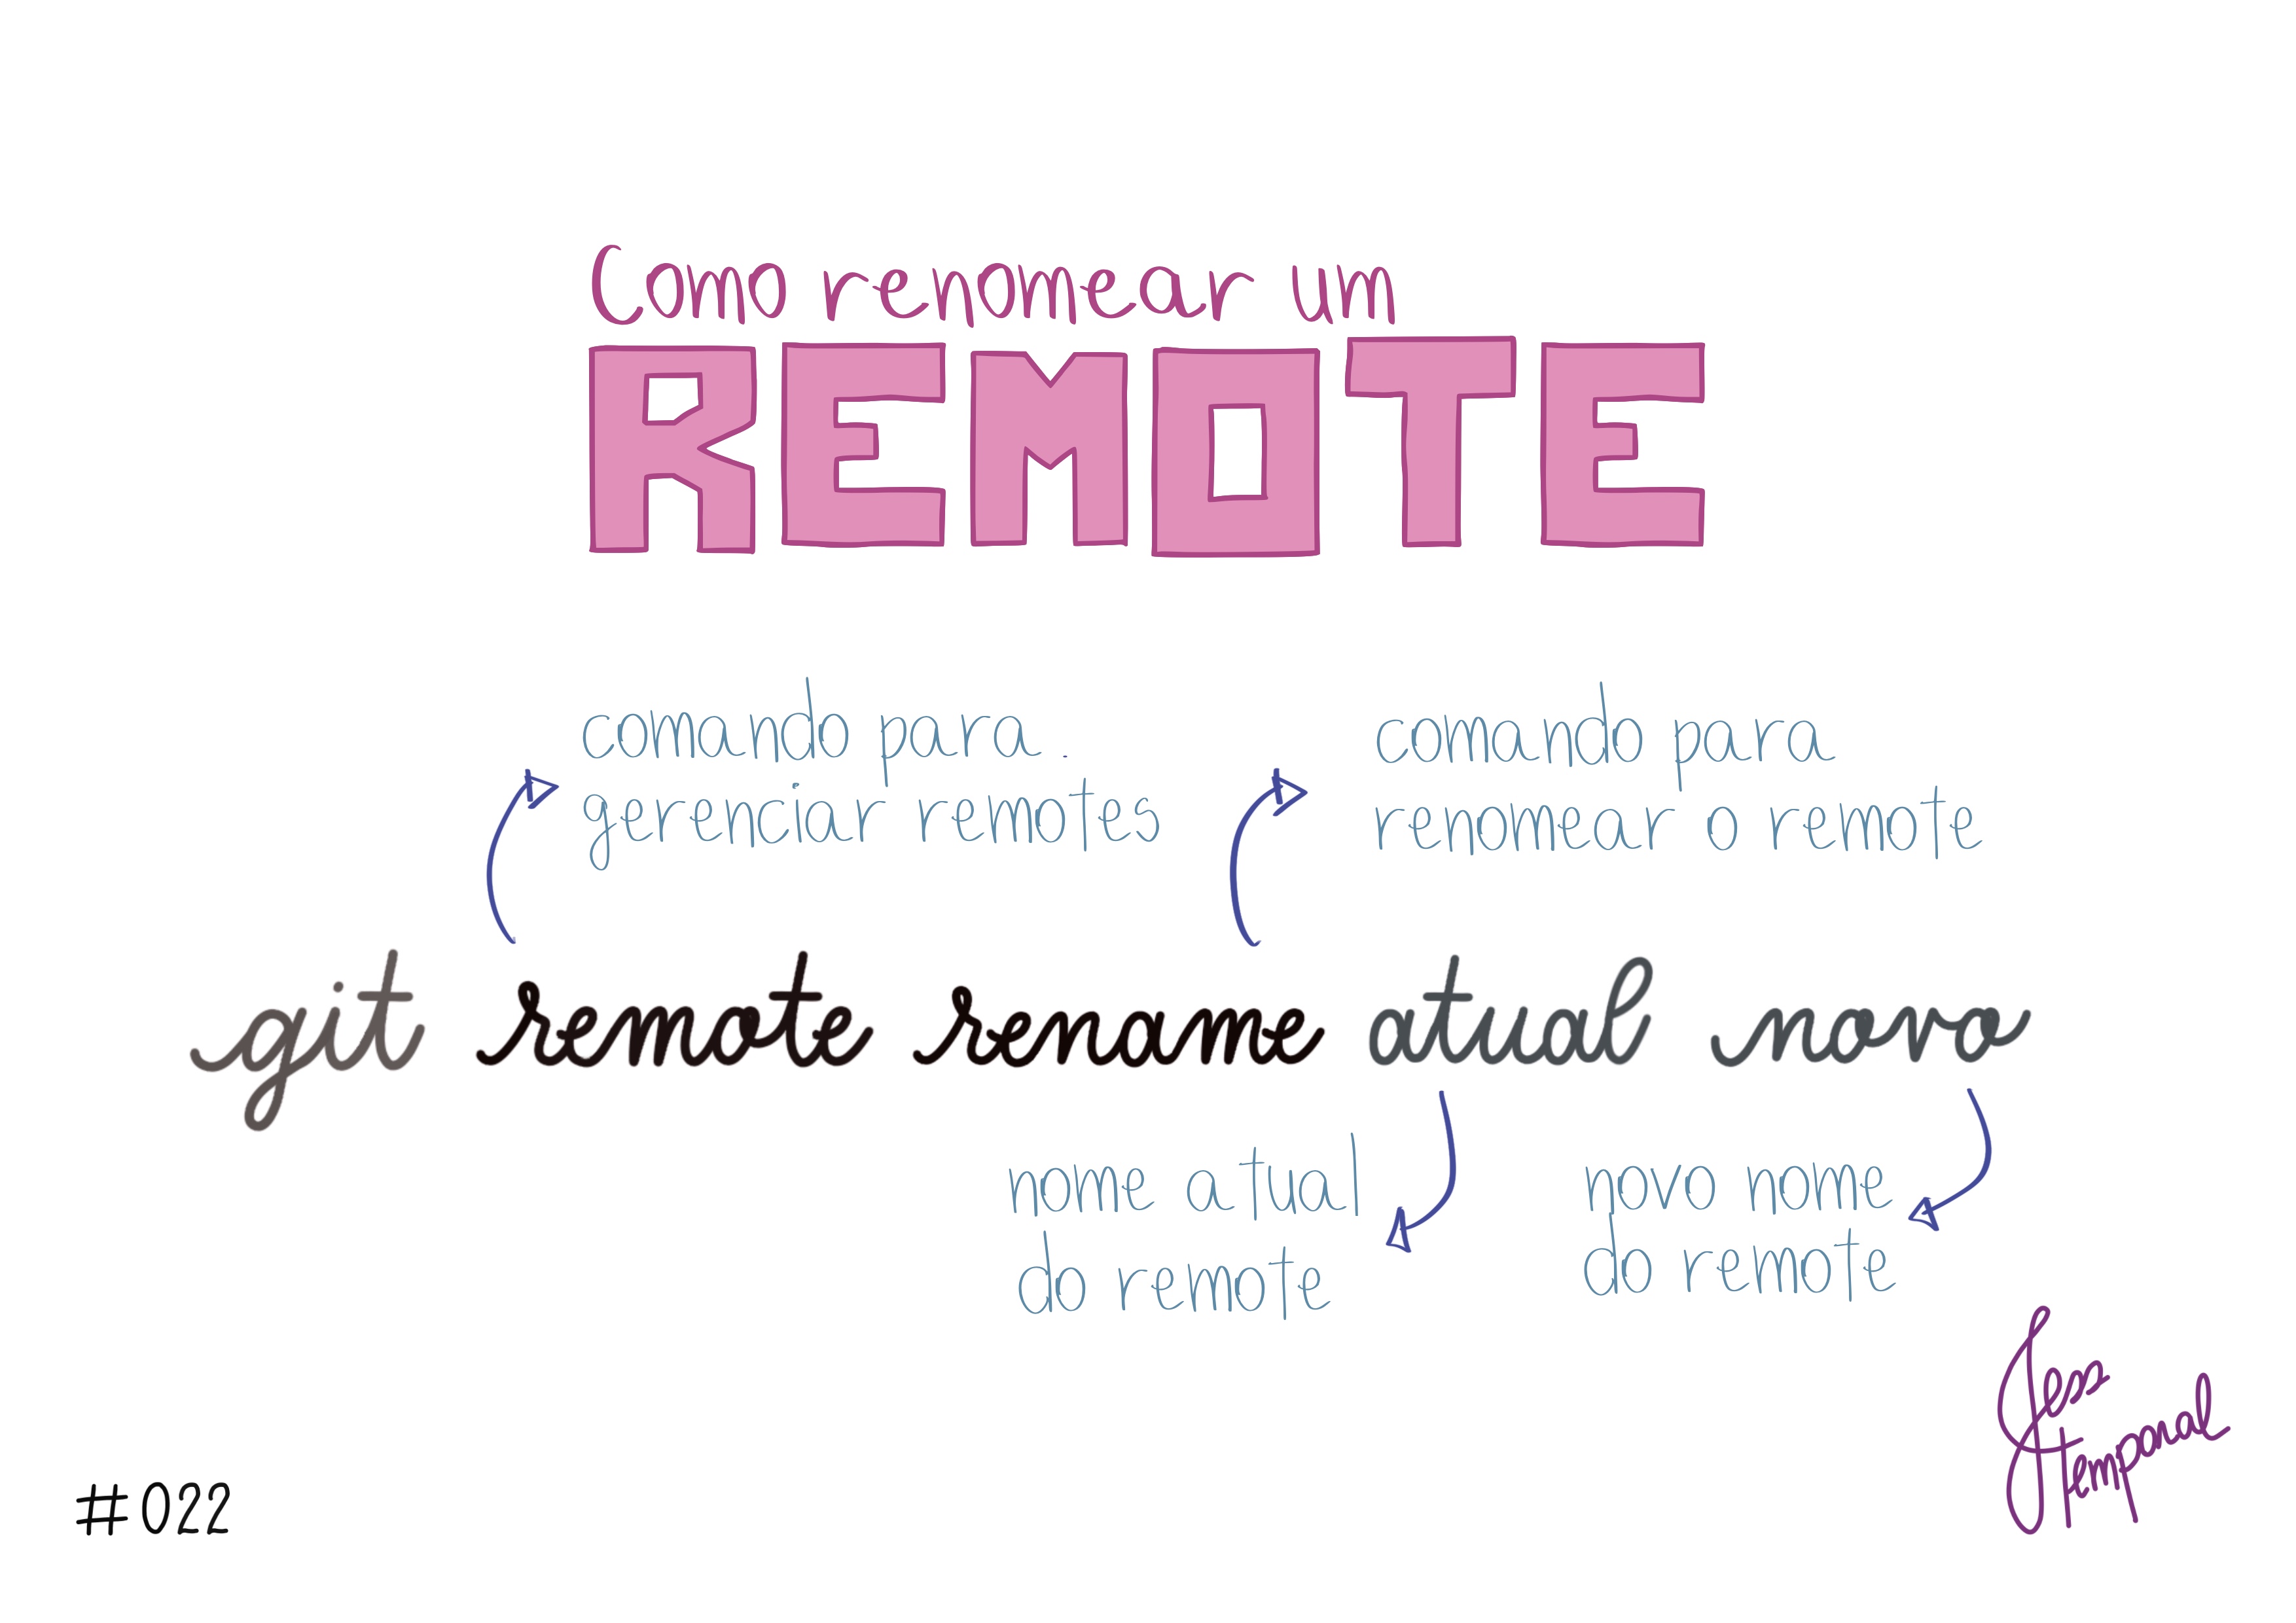 Como renomear um
REMOTE
comando para
gerenciar remotes
comando para
renomear o remote
git remote rename atual novo
nome atual
do remote
novo nome
do remote
Jess
temporal
#022